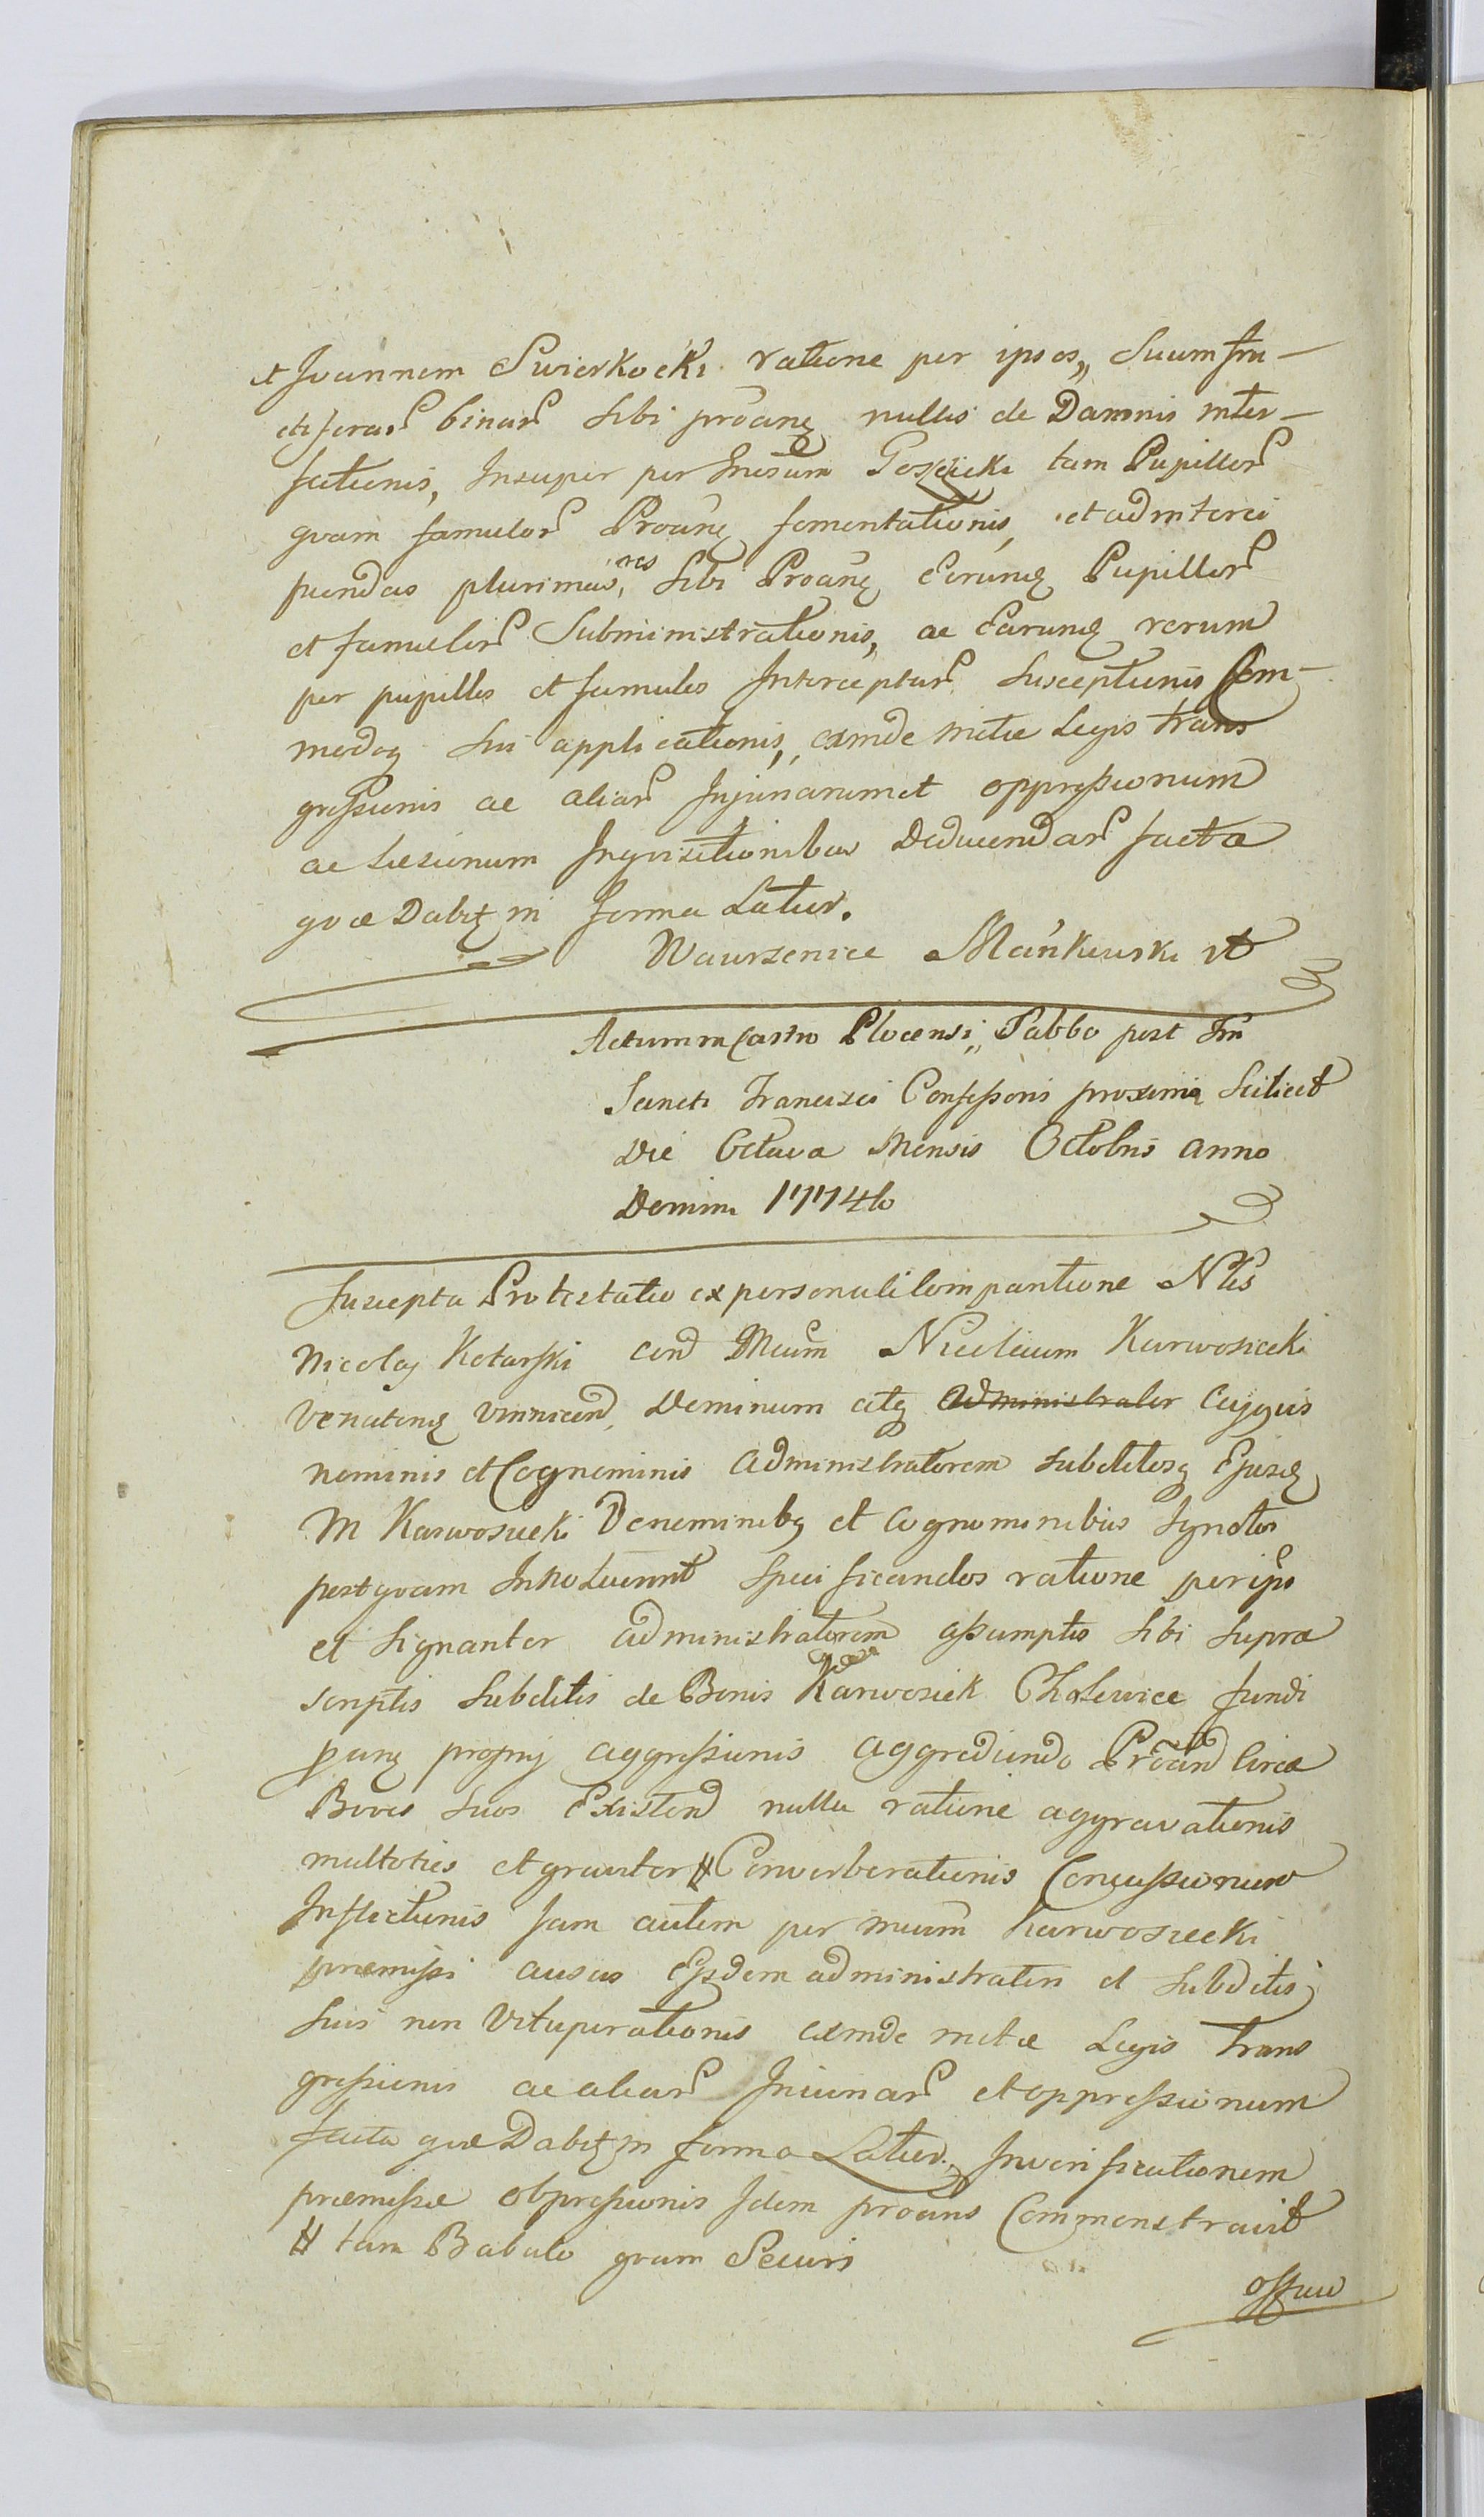 et Joannem Swierkocki ratione per ipsos,, Suum fru-
ctiferar. binar. Sibi proãng nullis de Damnis inter-
fectionis, Insuper per Gnosum Gosclicki tam Pupillor.
qvam famulor. Proãng fomentationis, et ad interci
piendas plurimas, res Sibi Proãng Eorumq Pupillor.
et famulor. Subministrationis, ac Earumq rerum
per pupillos et famulos Interceptar. Susceptionis Com-
modoq Sui applicationis, exinde metæ Legis trans
greſsionis ac aliar. Injuriarum et oppreſsionum
ac Læsionum Inqvisitionibus Deducendar. facta
qvæ Dabit in forma Latior.
Wawrzeniec Mańkowski
Actum in Castro Plocensi,, Sabbo post Fm
Sancti Francisci Confeſsoris proximo Scilicet
Die Octava Mensis Octobris anno
Domini 1774to
Suscepta Protestatio ex personali Comparitione Nlis
Nicolaj Kotarski con Mcum Nicolaum Karwosiecki
venatonq vinnicen, Dominum atq administrator Cujqvis
nominis et Cognominis administratorem subditosq Ejusq
M Karwosiecki De nominibq et Cognominibus Ignotos
postqvam Innotuerint Specificandos ratione per ipso
et Signanter administratorem aſsumptis Sibi Supra
scriptis Subditis de Bonis Karwosiek Cholewice fundi
proanq proprij aggreſsionis aggrediendo Proãnd Circa
Boves Suos Existend nulla ratione aggravationis
multoties et graviter # Converberationis Concuſsionum
Inflictionis Jam autem per mcum Karwosiecki
præmiſsi ausus Ejsdem administratori et Subditis
Suis non Vituperationis exinde metæ Legis trans
greſsionis ac aliar. Iniuriar. et oppreſsionum
facta qvæ Dabit in forma Latior. In verificationem
præmiſsæ obpreſsionis Idem proans Commonstravit
# tam Babalo qvam Securi